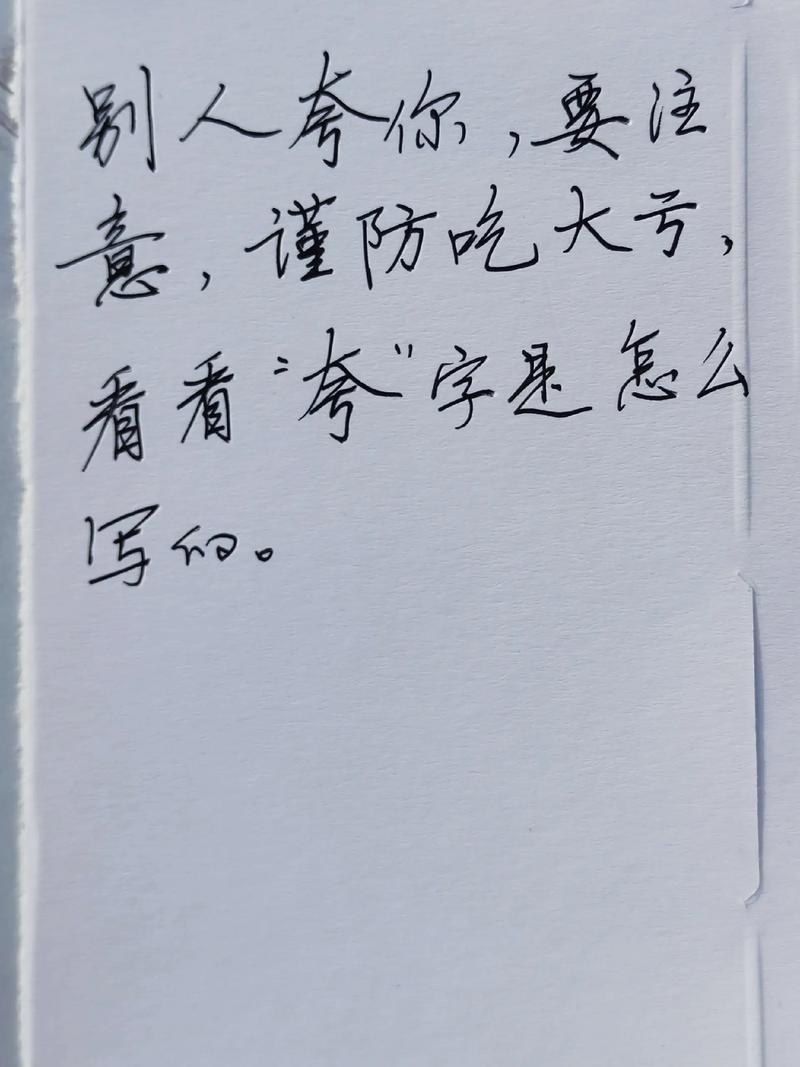 别人夸你,要注
意,谨防吃大亏,
看看“夸”字是怎么
写的。